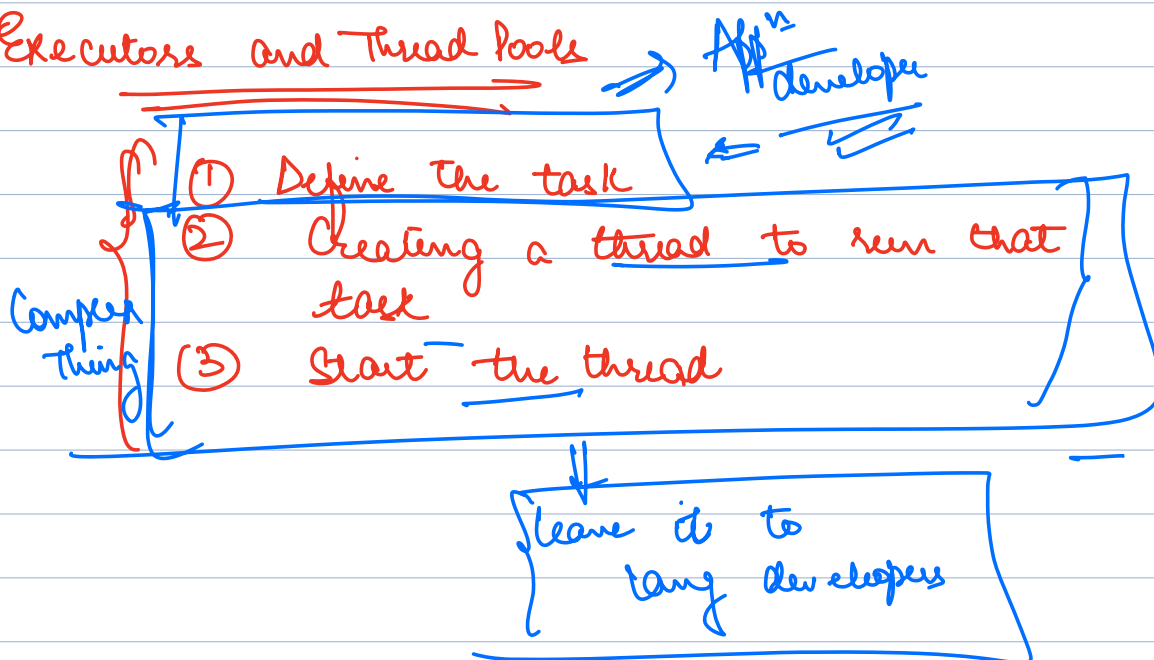 Executors and Thread Pools
Appⁿ
developer
① Define the task
② Creating a thread to run that
task
Complex
Thing
③ Start the thread
leave it to
lang developers